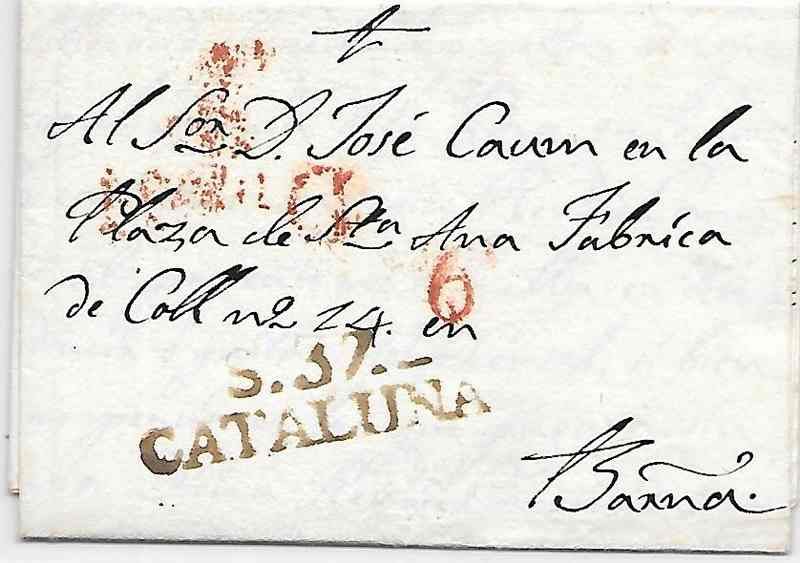 Al Sor. D. José Caum en la
Plaza de Sta Ana Fabrica
de Coll no 24. en
6
S. 37.
CATALUÑA
Barna.